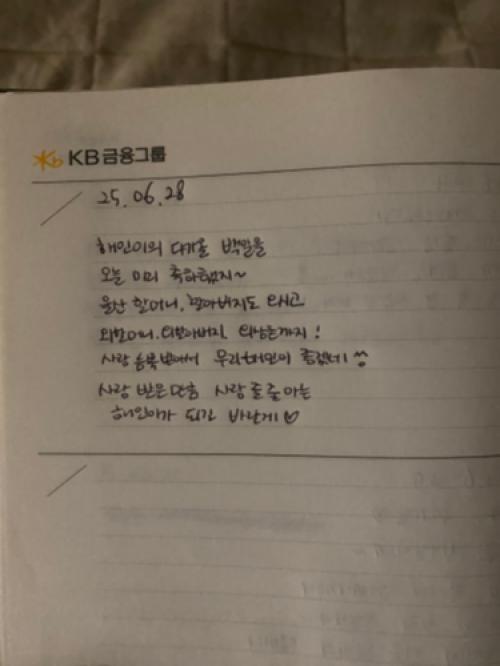 KB 금융그룹
25.06.28
해인이의 다가올 백일을
오늘 미리 축하했지~
울산 할머니, 할아버지도 오시고
외할머니, 외할아버지, 외삼촌까지!
사랑 듬뿍 받아서 우리 해인이 좋겠네
사랑 받은만큼 사랑을 줄 아는
해인이가 되길 바란게♡